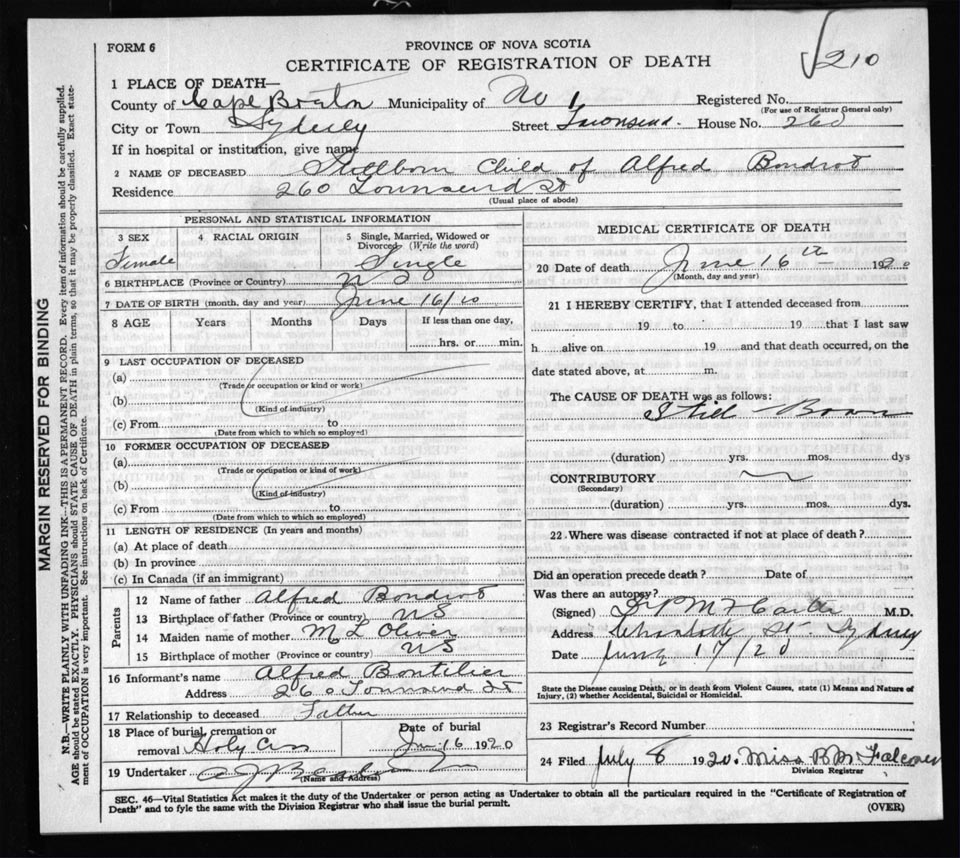 FORM 6
PROVINCE OF NOVA SCOTIA
CERTIFICATE OF REGISTRATION OF DEATH
210
1 PLACE OF DEATH—
County of Cape Breton Municipality of No 1 Registered No.
(For use of Registrar General only)
City or Town Sydney Street Townsend. House No. 260
If in hospital or institution, give name
2 NAME OF DECEASED Stillborn Child of Alfred Bondrot
Residence 260 Townsend St
(Usual place of abode)
PERSONAL AND STATISTICAL INFORMATION
3 SEX Female
4 RACIAL ORIGIN
5 Single, Married, Widowed or Divorced (Write the word) Single
6 BIRTHPLACE (Province or Country) N S
7 DATE OF BIRTH (month, day and year) June 16/20
8 AGE Years Months Days If less than one day,
hrs. or min.
9 LAST OCCUPATION OF DECEASED
(a)
(Trade or occupation or kind or work)
(b)
(Kind of industry)
(c) From to
(Date from which to which so employed)
10 FORMER OCCUPATION OF DECEASED
(a)
(Trade or occupation or kind of work)
(b)
(Kind of industry)
(c) From to
(Date from which to which so employed)
11 LENGTH OF RESIDENCE (In years and months)
(a) At place of death
(b) In province
(c) In Canada (if an immigrant)
Parents
12 Name of father Alfred Bondrot
13 Birthplace of father (Province or country) NS
14 Maiden name of mother M L Oliver
15 Birthplace of mother (Province or country) NS
16 Informant's name Alfred Bontilier
Address 260 Townsend St
17 Relationship to deceased Father
18 Place of burial, cremation or removal Holy Cross
Date of burial Jun 16 1920
19 Undertaker
(Name and Address)
MEDICAL CERTIFICATE OF DEATH
20 Date of death June 16th 1920
(Month, day and year)
21 I HEREBY CERTIFY, that I attended deceased from
19 to 19 that I last saw
h alive on 19 and that death occurred, on the
date stated above, at m.
The CAUSE OF DEATH was as follows:
Still Born
(duration) yrs. mos. dys
CONTRIBUTORY
(Secondary)
(duration) yrs. mos. dys.
22 Where was disease contracted if not at place of death?
Did an operation precede death? Date of
Was there an autopsy?
(Signed) M.D.
Address Charlotte St Sydney
Date June 17/20
State the Disease causing Death, or in death from Violent Causes, state (1) Means and Nature of
Injury, (2) whether Accidental, Suicidal or Homicidal.
23 Registrar's Record Number
24 Filed July 8 1920. Miss B M Falconer
Division Registrar
SEC. 46—Vital Statistics Act makes it the duty of the Undertaker or person acting as Undertaker to obtain all the particulars required in the "Certificate of Registration of
Death" and to fyle the same with the Division Registrar who shall issue the burial permit.
(OVER)
MARGIN RESERVED FOR BINDING
N.B.—WRITE PLAINLY WITH UNFADING INK—THIS IS A PERMANENT RECORD. Every item of information should be carefully supplied.
AGE should be stated EXACTLY. PHYSICIANS should STATE CAUSE OF DEATH in plain terms, so that it may be properly classified. Exact state-
ment of OCCUPATION is very important. See instructions on back of Certificate.